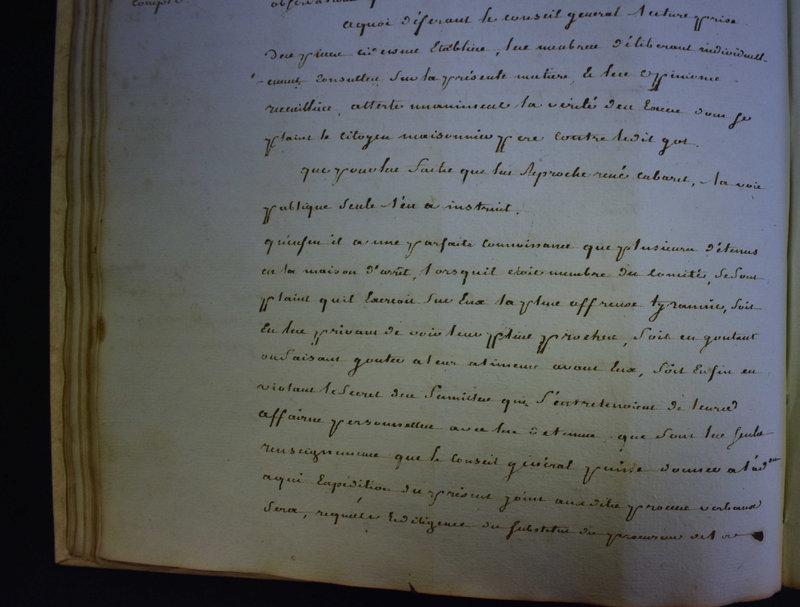 compte.
observations
aquoi déferant le conseil general lecture prise
des pieces cidessus Etablies, les membres déliberant individuell-
-ement consultés sur la présente matiere & les opinions
recueillies, atteste unanimement la vérité des dont se
plaint le citoyen maisonnier pere contre ledit got.
que pour les faits que lui Reproche rené cabaret, la voix
publique seule l'en a instruit.
qu'enfin il a une parfaite connoissance que plusieurs détenus
en la maison d'arrêt, lorsquil etoit membre du Comité, se sont
plaint quil Exercoit sur Eux la plus affreuse tyrannie, soit
En les privant de voir leurs plus proches, soit en goutant
ou faisant gouter a leurs aliments avant Eux, soit Enfin en
violant le secret des familles qui s'entretenoient de leurs
affaires personnelles avec les detenus. que sont les seuls
renseignements que le Conseil général puisse donner a
aqui Expedition du présent joint auxdits proces verbaux
sera, requête & diligence du substitut du procureur